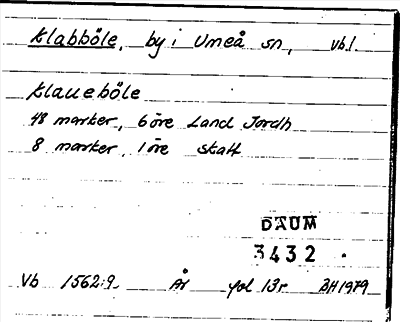 Klabböle, by i Umeå sn, vb.l.
Klaueböle
48 marker, 6 öre Land Jordh
8 marker, 1 öre skatt
DAUM
3432.
Vb 1562:9 År fol 13r BH 1979